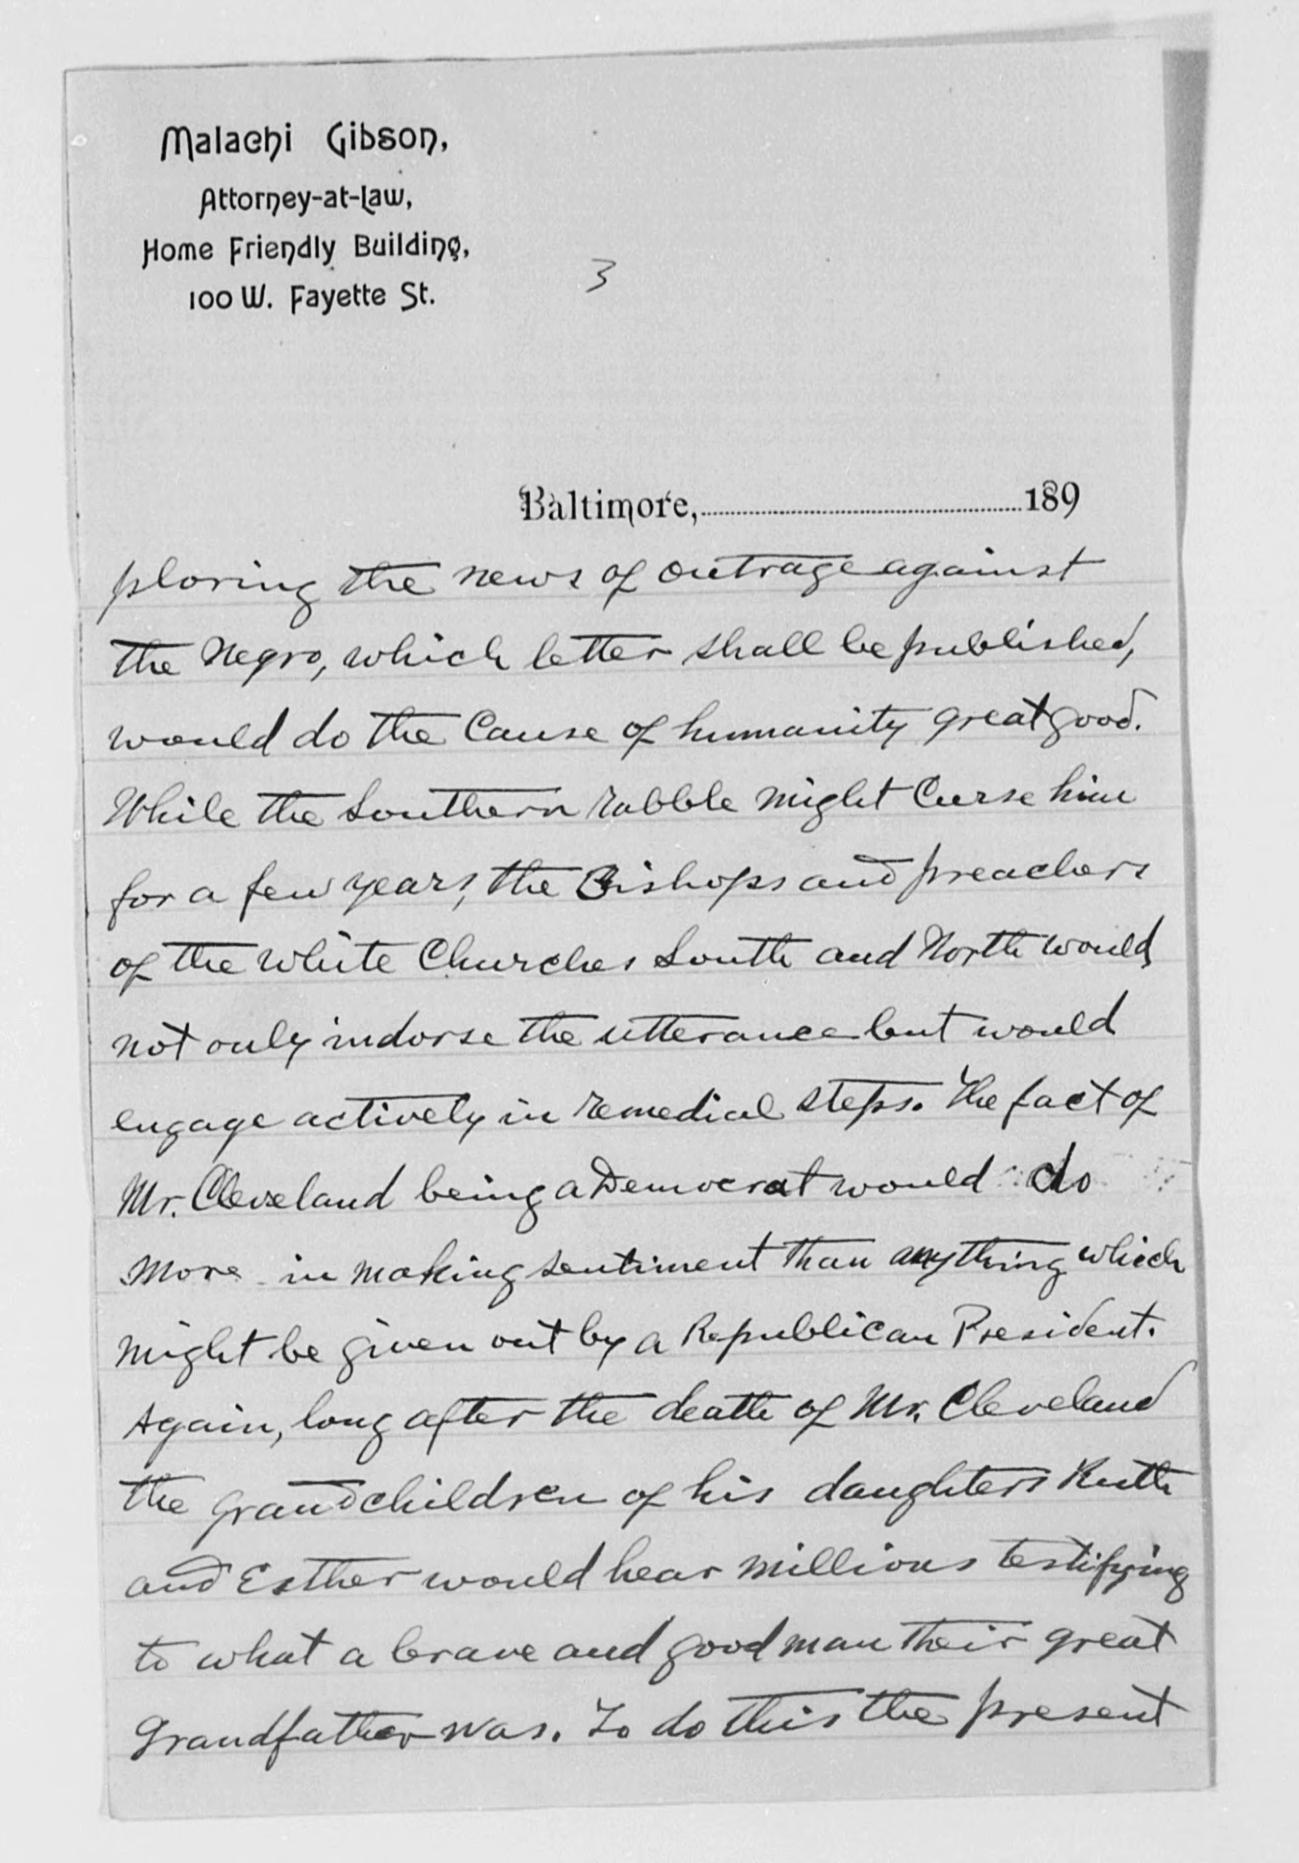 Malachi Gibson,
Attorney-at-Law,
Home Friendly Building,
100 W. Fayette St.
3
Baltimore, 189
ploring the news of outrage against
the Negro, which letter shall be published,
would do the Cause of humanity great good.
While the Southern rabble might Curse him
for a few years, the Bishops and preachers
of the white Churches South and North would
not only indorse the utterance but would
engage actively in remedial steps. The fact of
Mr. Cleveland being a Democrat would do
more in making sentiment than anything which
might be given out by a Republican President.
Again, long after the death of Mr. Cleveland
the grandchildren of his daughters Ruth
and Esther would hear millions testifying
to what a brave and good man their great
Grandfather was. To do this the present